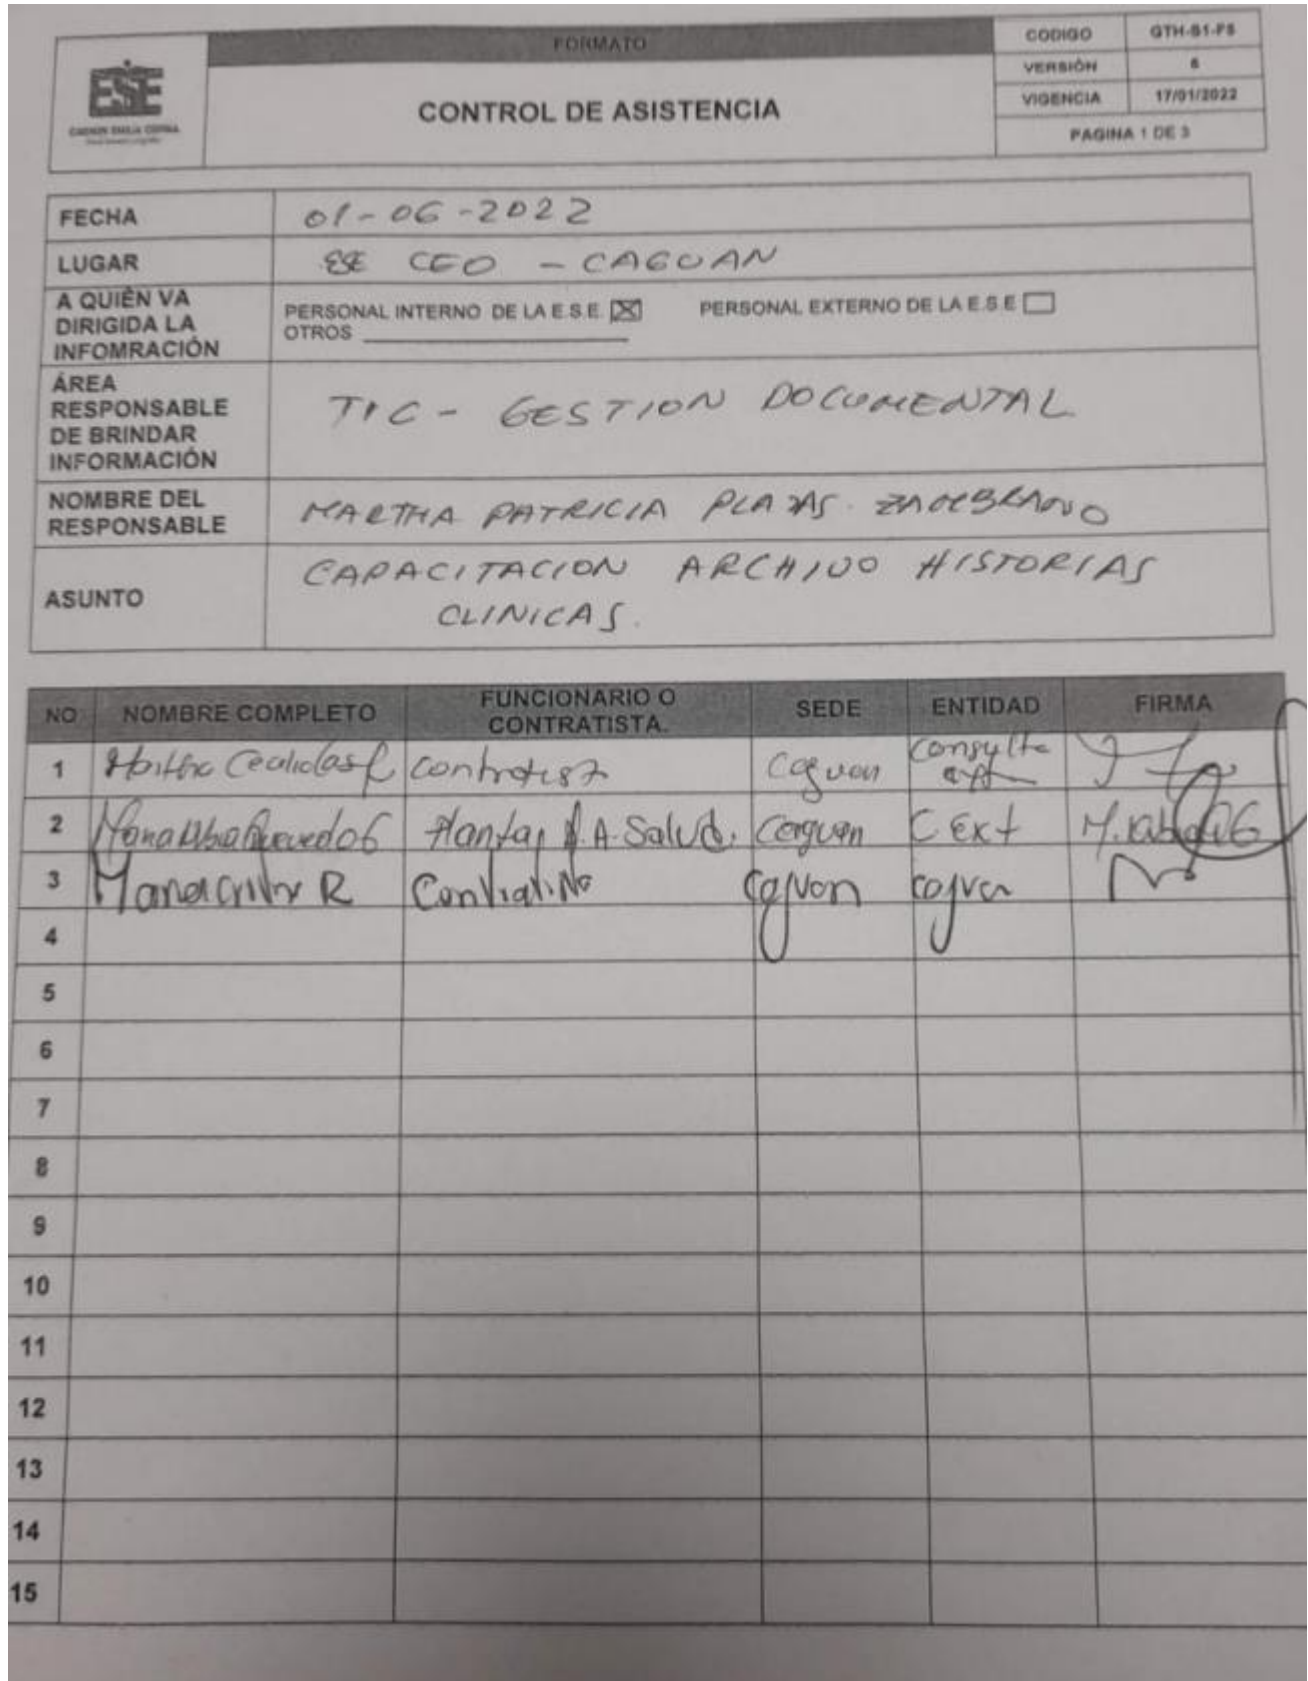 FORMATO
CODIGO GTH-S1-F5
ESE
CARMEN EMILIA OSPINA
CONTROL DE ASISTENCIA
VERSIÓN 6
VIGENCIA 17/01/2022
PAGINA 1 DE 3
FECHA 01-06-2022
LUGAR ESE CEO - CAGUAN
A QUIÉN VA
DIRIGIDA LA
INFOMRACIÓN
PERSONAL INTERNO DE LA E.S.E. PERSONAL EXTERNO DE LA E.S.E
OTROS
ÁREA
RESPONSABLE
DE BRINDAR
INFORMACIÓN
TIC - GESTION DOCUMENTAL
NOMBRE DEL
RESPONSABLE
MARTHA PATRICIA PLAZAS ZAMBRANO
ASUNTO
CAPACITACION ARCHIVO HISTORIAS
CLINICAS.
NO NOMBRE COMPLETO FUNCIONARIO O CONTRATISTA. SEDE ENTIDAD FIRMA
1 contratista Caguan Consulta
2 Planta A. Salud. Caguan C Ext
3 R Caguan
4
5
6
7
8
9
10
11
12
13
14
15